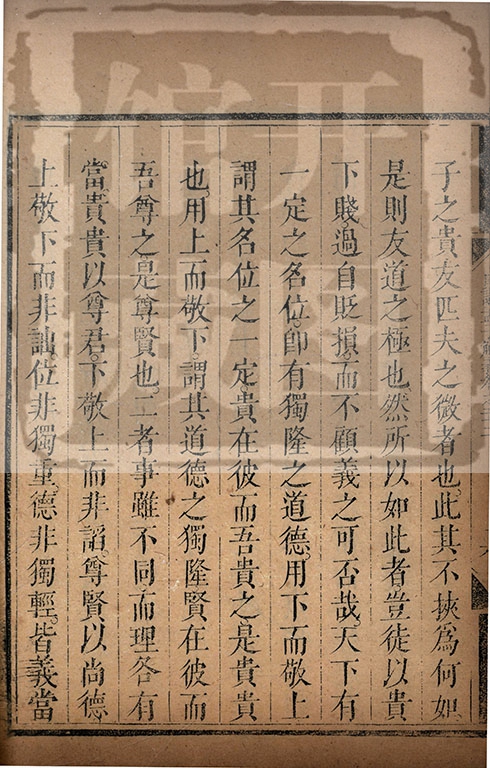 子之貴友匹夫之微者也此其不挾為何如
是則友道之極也然所以如此者豈徒以貴
下賤過自貶損而不顧義之可否哉天下有
一定之名位即有獨隆之道德用下而敬上
謂其名位之一定貴在彼而吾貴之是貴貴
也用上而敬下謂其道德之獨隆賢在彼而
吾尊之是尊賢也二者事雖不同而理各有
當貴貴以尊君下敬上而非諂尊賢以尚德
上敬下而非詘位非獨重德非獨輕皆義當